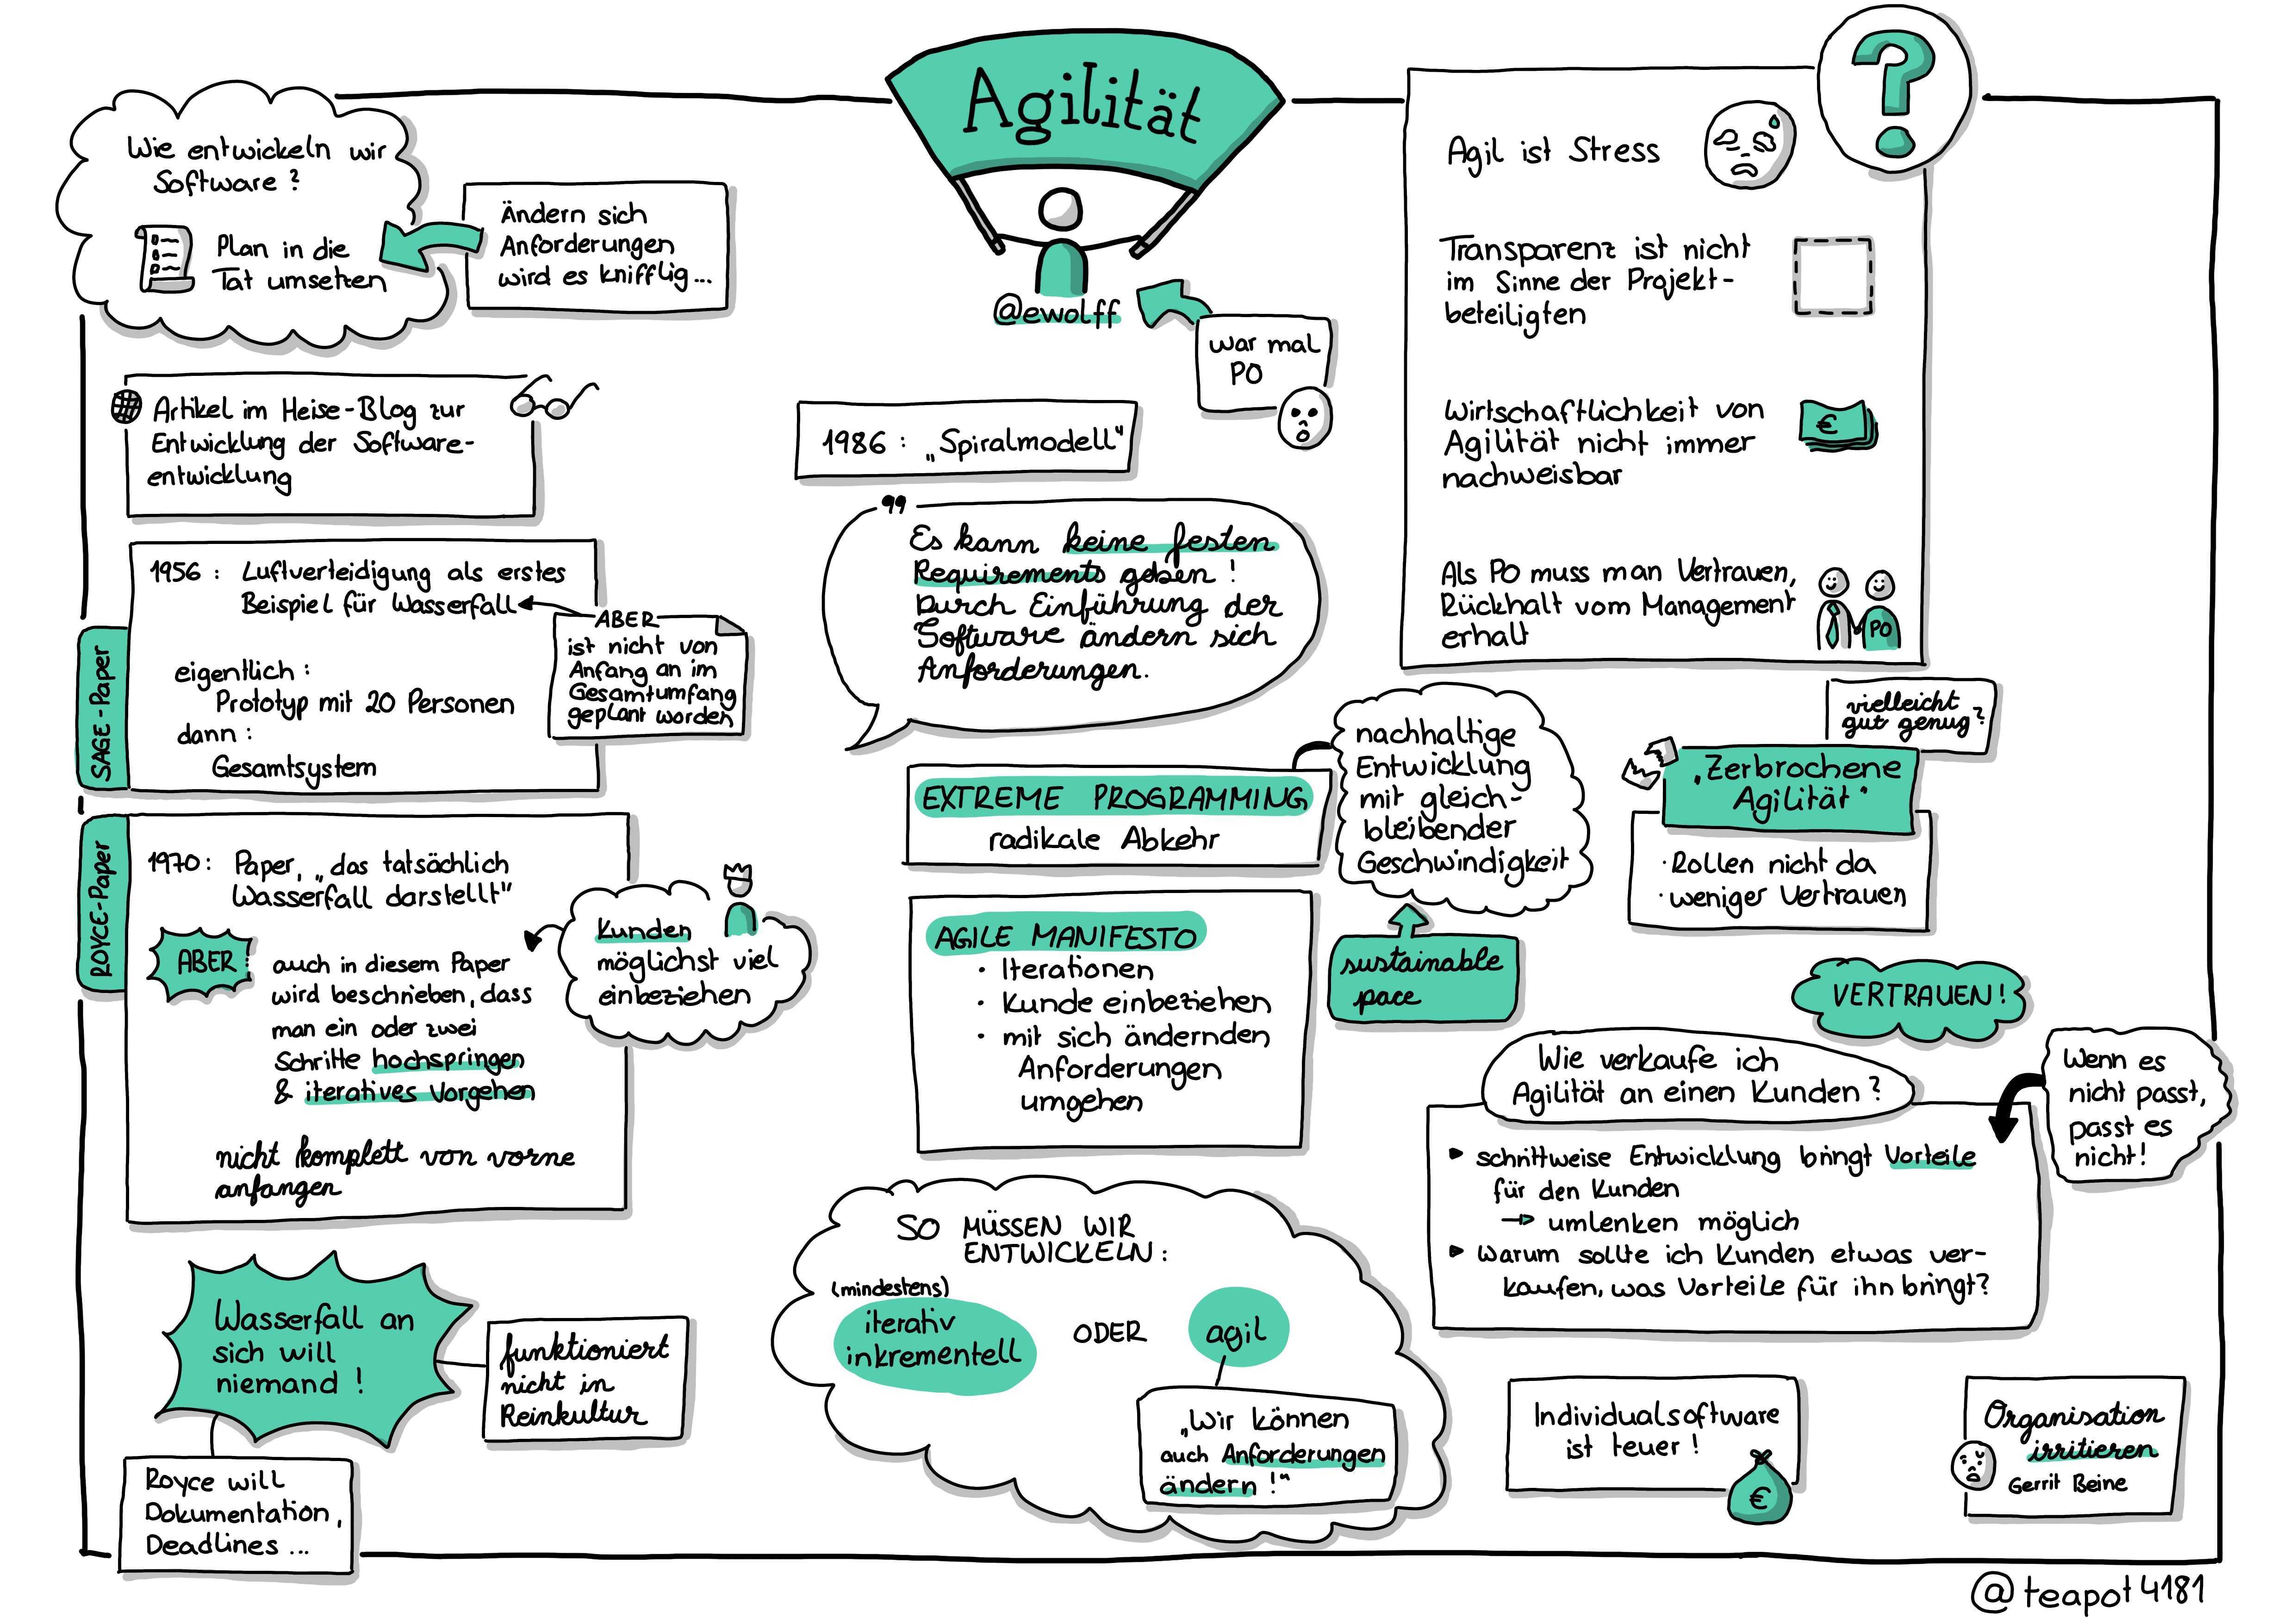 Agilität
@ewolff
war mal
PO
Wie entwickeln wir
Software?
Plan in die
Tat umsetzen
Ändern sich
Anforderungen
wird es knifflig...
Artikel im Heise-Blog zur
Entwicklung der Software-
entwicklung
SAGE-Paper
1956: Luftverteidigung als erstes
Beispiel für Wasserfall
eigentlich:
Prototyp mit 20 Personen
dann:
Gesamtsystem
ABER
ist nicht von
Anfang an im
Gesamtumfang
geplant worden
ROYCE-Paper
1970: Paper, „das tatsächlich
Wasserfall darstellt"
ABER!
auch in diesem Paper
wird beschrieben, dass
man ein oder zwei
Schritte hochspringen
& iteratives Vorgehen
nicht komplett von vorne
anfangen
Kunden
möglichst viel
einbeziehen
Wasserfall an
sich will
niemand!
funktioniert
nicht in
Reinkultur
Royce will
Dokumentation,
Deadlines...
1986: „Spiralmodell"
Es kann keine festen
Requirements geben!
Durch Einführung der
Software ändern sich
Anforderungen.
EXTREME PROGRAMMING
radikale Abkehr
nachhaltige
Entwicklung
mit gleich-
bleibender
Geschwindigkeit
sustainable
pace
AGILE MANIFESTO
· Iterationen
· Kunde einbeziehen
· mit sich ändernden
Anforderungen
umgehen
SO MÜSSEN WIR
ENTWICKELN:
(mindestens)
iterativ
inkrementell
ODER
agil
„Wir können
auch Anforderungen
ändern!"
?
Agil ist Stress
Transparenz ist nicht
im Sinne der Projekt-
beteiligten
Wirtschaftlichkeit von
Agilität nicht immer
nachweisbar
€
Als PO muss man Vertrauen,
Rückhalt vom Management
erhalt
PO
vielleicht
gut genug?
„Zerbrochene
Agilität"
· Rollen nicht da
· weniger Vertrauen
VERTRAUEN!
Wie verkaufe ich
Agilität an einen Kunden?
Wenn es
nicht passt,
passt es
nicht!
▸ schrittweise Entwicklung bringt Vorteile
für den Kunden
→ umlenken möglich
▸ Warum sollte ich Kunden etwas ver-
kaufen, was Vorteile für ihn bringt?
Individualsoftware
ist teuer!
€
Organisation
irritieren
Gerrit Beine
@teapot4181